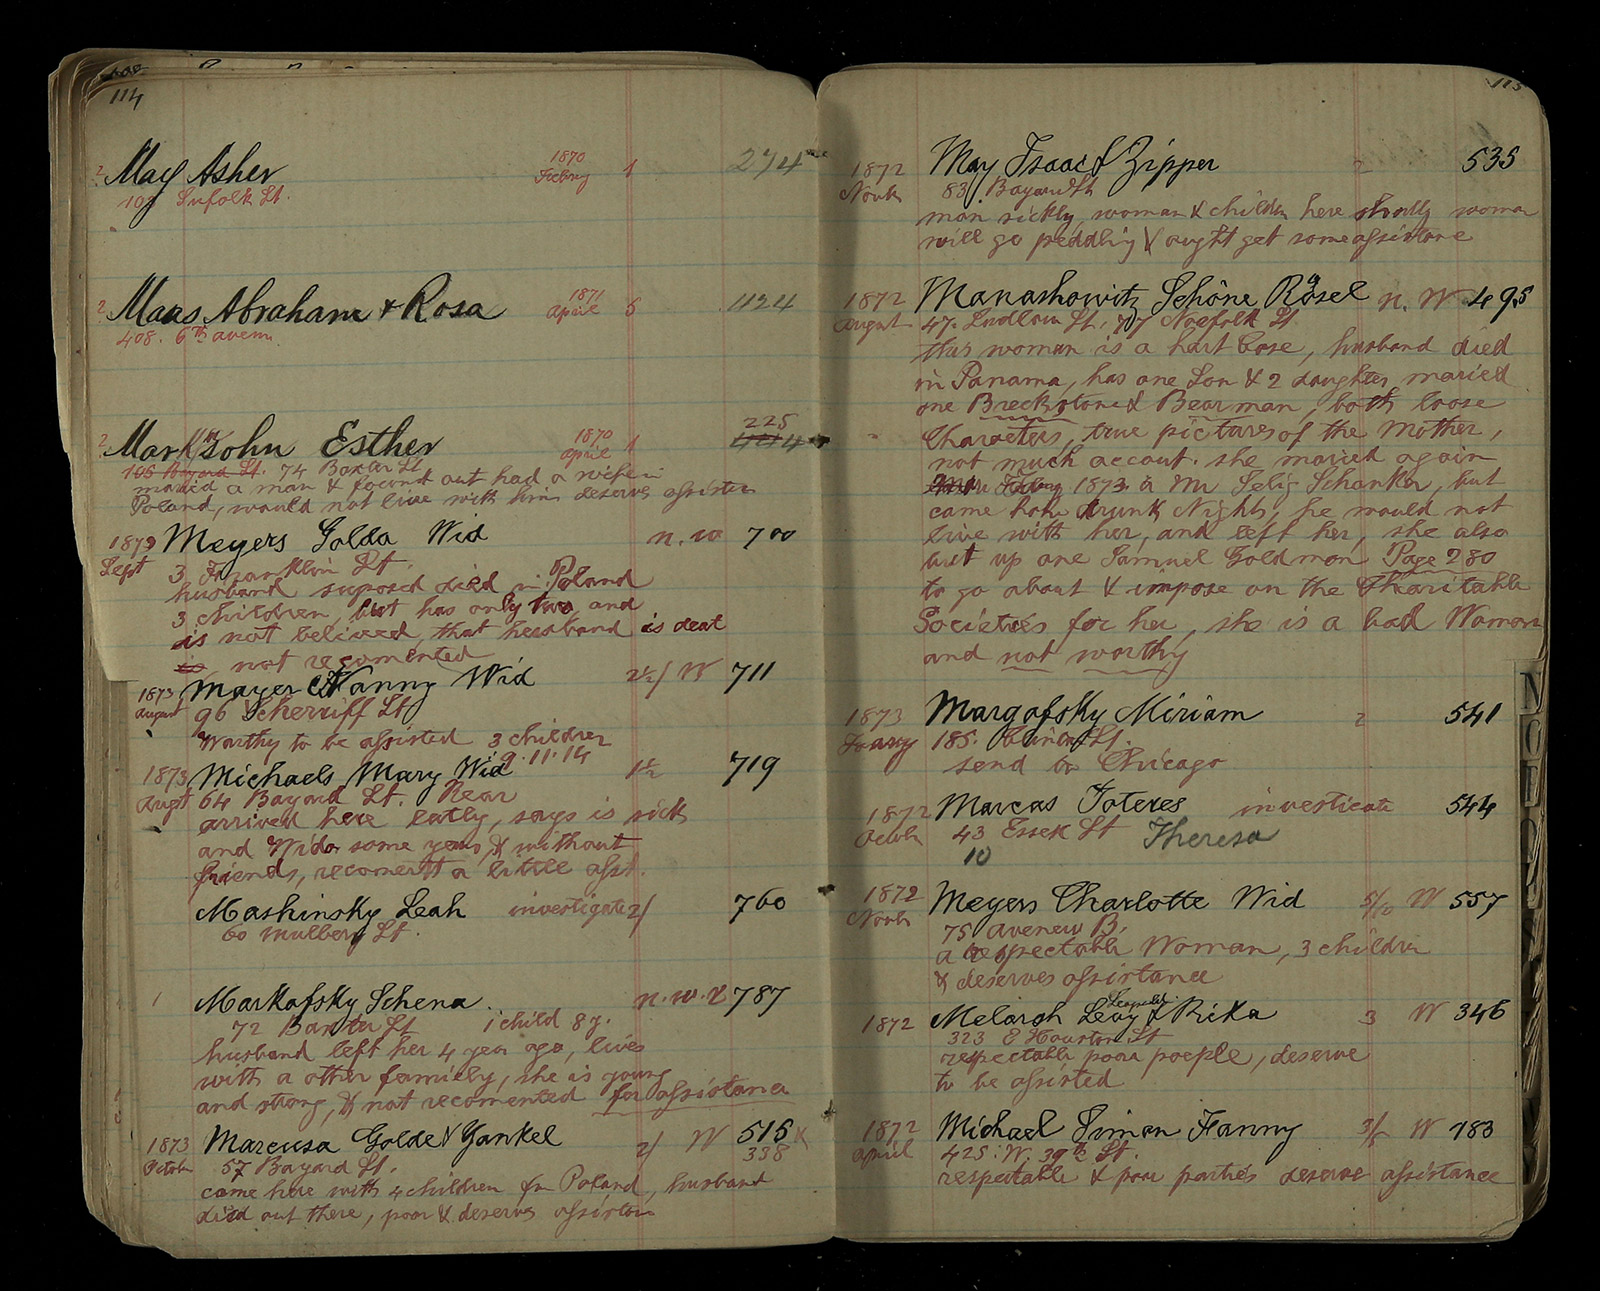 114
2 May Asher 1870 1 274
103 Sufolk St.
2 Maas Abraham & Rosa 1871 April 5 1124
408. 6th avenu
225
2 Markssohn Esther 1870 april 1
105 Bayard St. 74 Baxter St
maried a man & found out had a wife in
Poland, would not live with him deserves assisten
1879 Meyers Golda Wid n. w 700
Sept 3 Franklin St.
husband suposed died in Poland
3 children, but has only two, and
is not believed, that heusband is deat
is not recomented
1873 Mayer Fanny Wid 2½/ W 711
August 96 Scherriff St
Worthy to be assisted 3 children
9. 11. 14
1873 Michaels Mary Wid 1½ 719
August 64 Bayard St. Rear
arrived here latly, says is sick
and Wido some years, & without
friends, recomentt a little asst.
Mashinsky Leah investigate 2/ 760
60 Mulbery St.
1 Markafsky Schena. n. w. & 787
72 Baxter St 1 child 8 y.
husband left her 4 year ago, lives
with a other familey, she is young
and strong, & not recomented for assistance
1873 Marcusa Golde & Yankel 2/ W 515 X
338
Octobr 57 Bayard St.
came here with 4 children fm Poland, husband
died out there, poor & deserves assistan
115
1872 May Isaac & Zipper 2 535
Novbr 83 Bayard St
man sickly, woman & childen here shortly woman
will go peddling & aught get some assistance
1872 Manashowitz Schöne Rösel n. W 495
August 47. Ludlow St. 77 Norfolk St
this woman is a hart Case, husband died
in Panama, has one Son & 2 daughters maried
one Breckstone & Bearman, both loose
Characters, true pictures of the Mother,
not much accout. she maried again
1873 a Mr Selig Schanker, but
came hom drunk Nights, he would not
live with her, and left her, she also
but up one Samuel Goldman Page 280
to go about & impose on the Charitable
Societies for her, she is a bad Woman
and not worthy
1873 Margofsky Miriam 2 541
185. Clinton St.
send to Chicago
1872 Marcas Toteres investicate 544
Octbr 43 Essex St Theresa
10
1872 Meyers Charlotte Wid 5/0 W 557
Novbr 75 Avenew B.
a respectable Woman, 3 children
& deserves assistance
Leopold
1872 Melargh Levy & Rika 3 W 346
323 E Houston St
respectable poor poeple, deserve
to be assisted
1872 Michael Simon Fanny W 183
April 425. W. 39th St.
respectable & poor parties deserve assistance